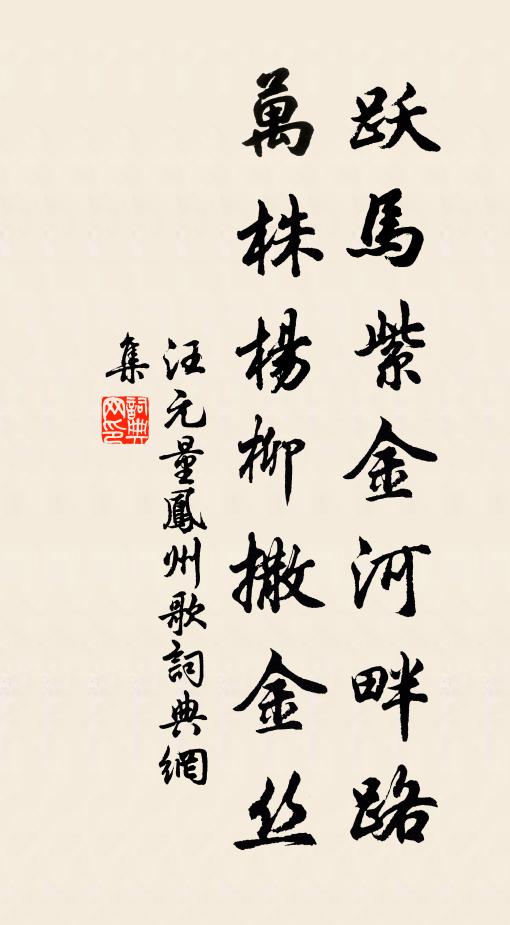 跃馬紫金河畔路
萬株楊柳撒金丝
汪元量鳳州歌詞典網
集
詞典
网印